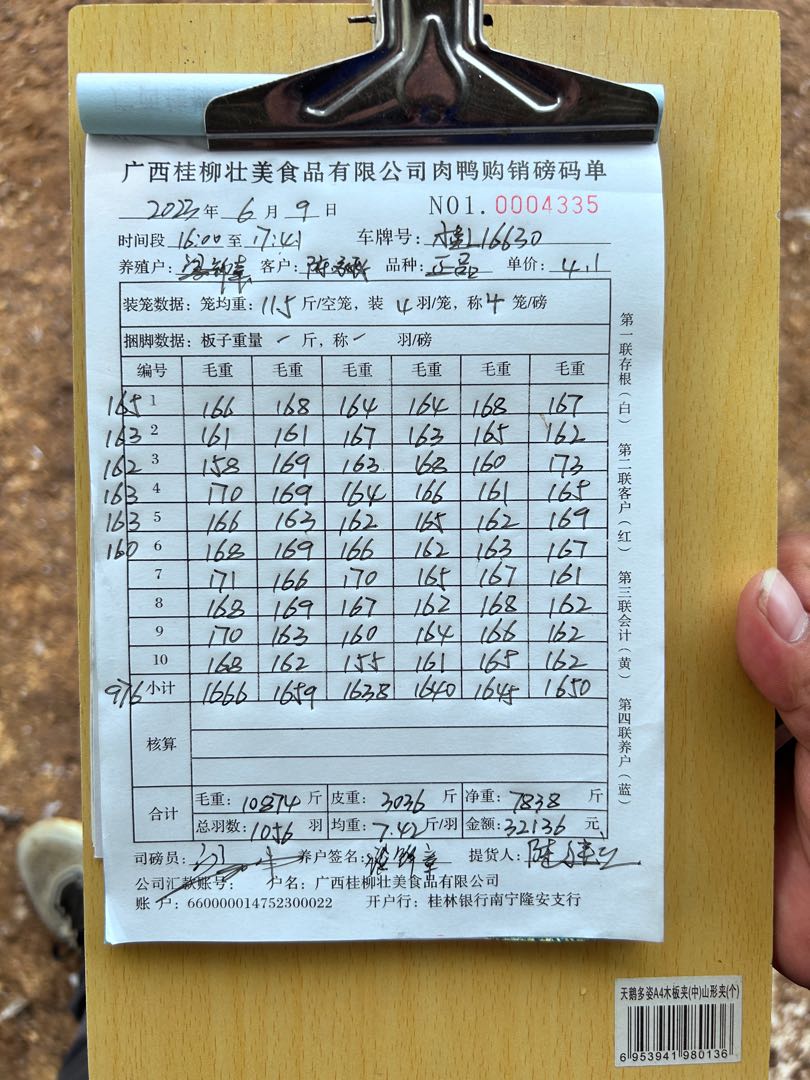 广西桂柳壮美食品有限公司肉鸭购销磅码单
2023年 6月 9日 NO1.0004335
时间段 16:00 至 17:41 车牌号: 桂L16630
养殖户: 客户: 品种: 正品 单价: 4.1
装笼数据: 笼均重: 11.5 斤/空笼, 装 4 羽/笼, 称 4 笼/磅
捆脚数据: 板子重量 一 斤, 称 一 羽/磅
编号 毛重 毛重 毛重 毛重 毛重 毛重
165 1 166 168 164 164 168 167
163 2 161 161 167 163 165 162
162 3 158 169 163 168 160 173
163 4 170 169 164 166 161 165
163 5 166 163 162 165 162 169
160 6 168 169 166 162 163 167
7 171 166 170 165 167 161
8 168 169 167 162 168 162
9 170 163 160 164 166 162
10 168 162 155 161 165 162
976 小计 1666 1659 1638 1640 1645 1650
核算
合计 毛重: 10874 斤 皮重: 3036 斤 净重: 7838 斤
总羽数: 1056 羽 均重: 7.42 斤/羽 金额: 32136 元
司磅员: 养户签名: 提货人:
公司汇款账号: 户名: 广西桂柳壮美食品有限公司
账 户: 660000014752300022 开户行: 桂林银行南宁隆安支行
第一联存根(白) 第二联客户(红) 第三联会计(黄) 第四联养户(蓝)
天鹅多姿A4木板夹(中)山形夹(个)
6 953941 980136